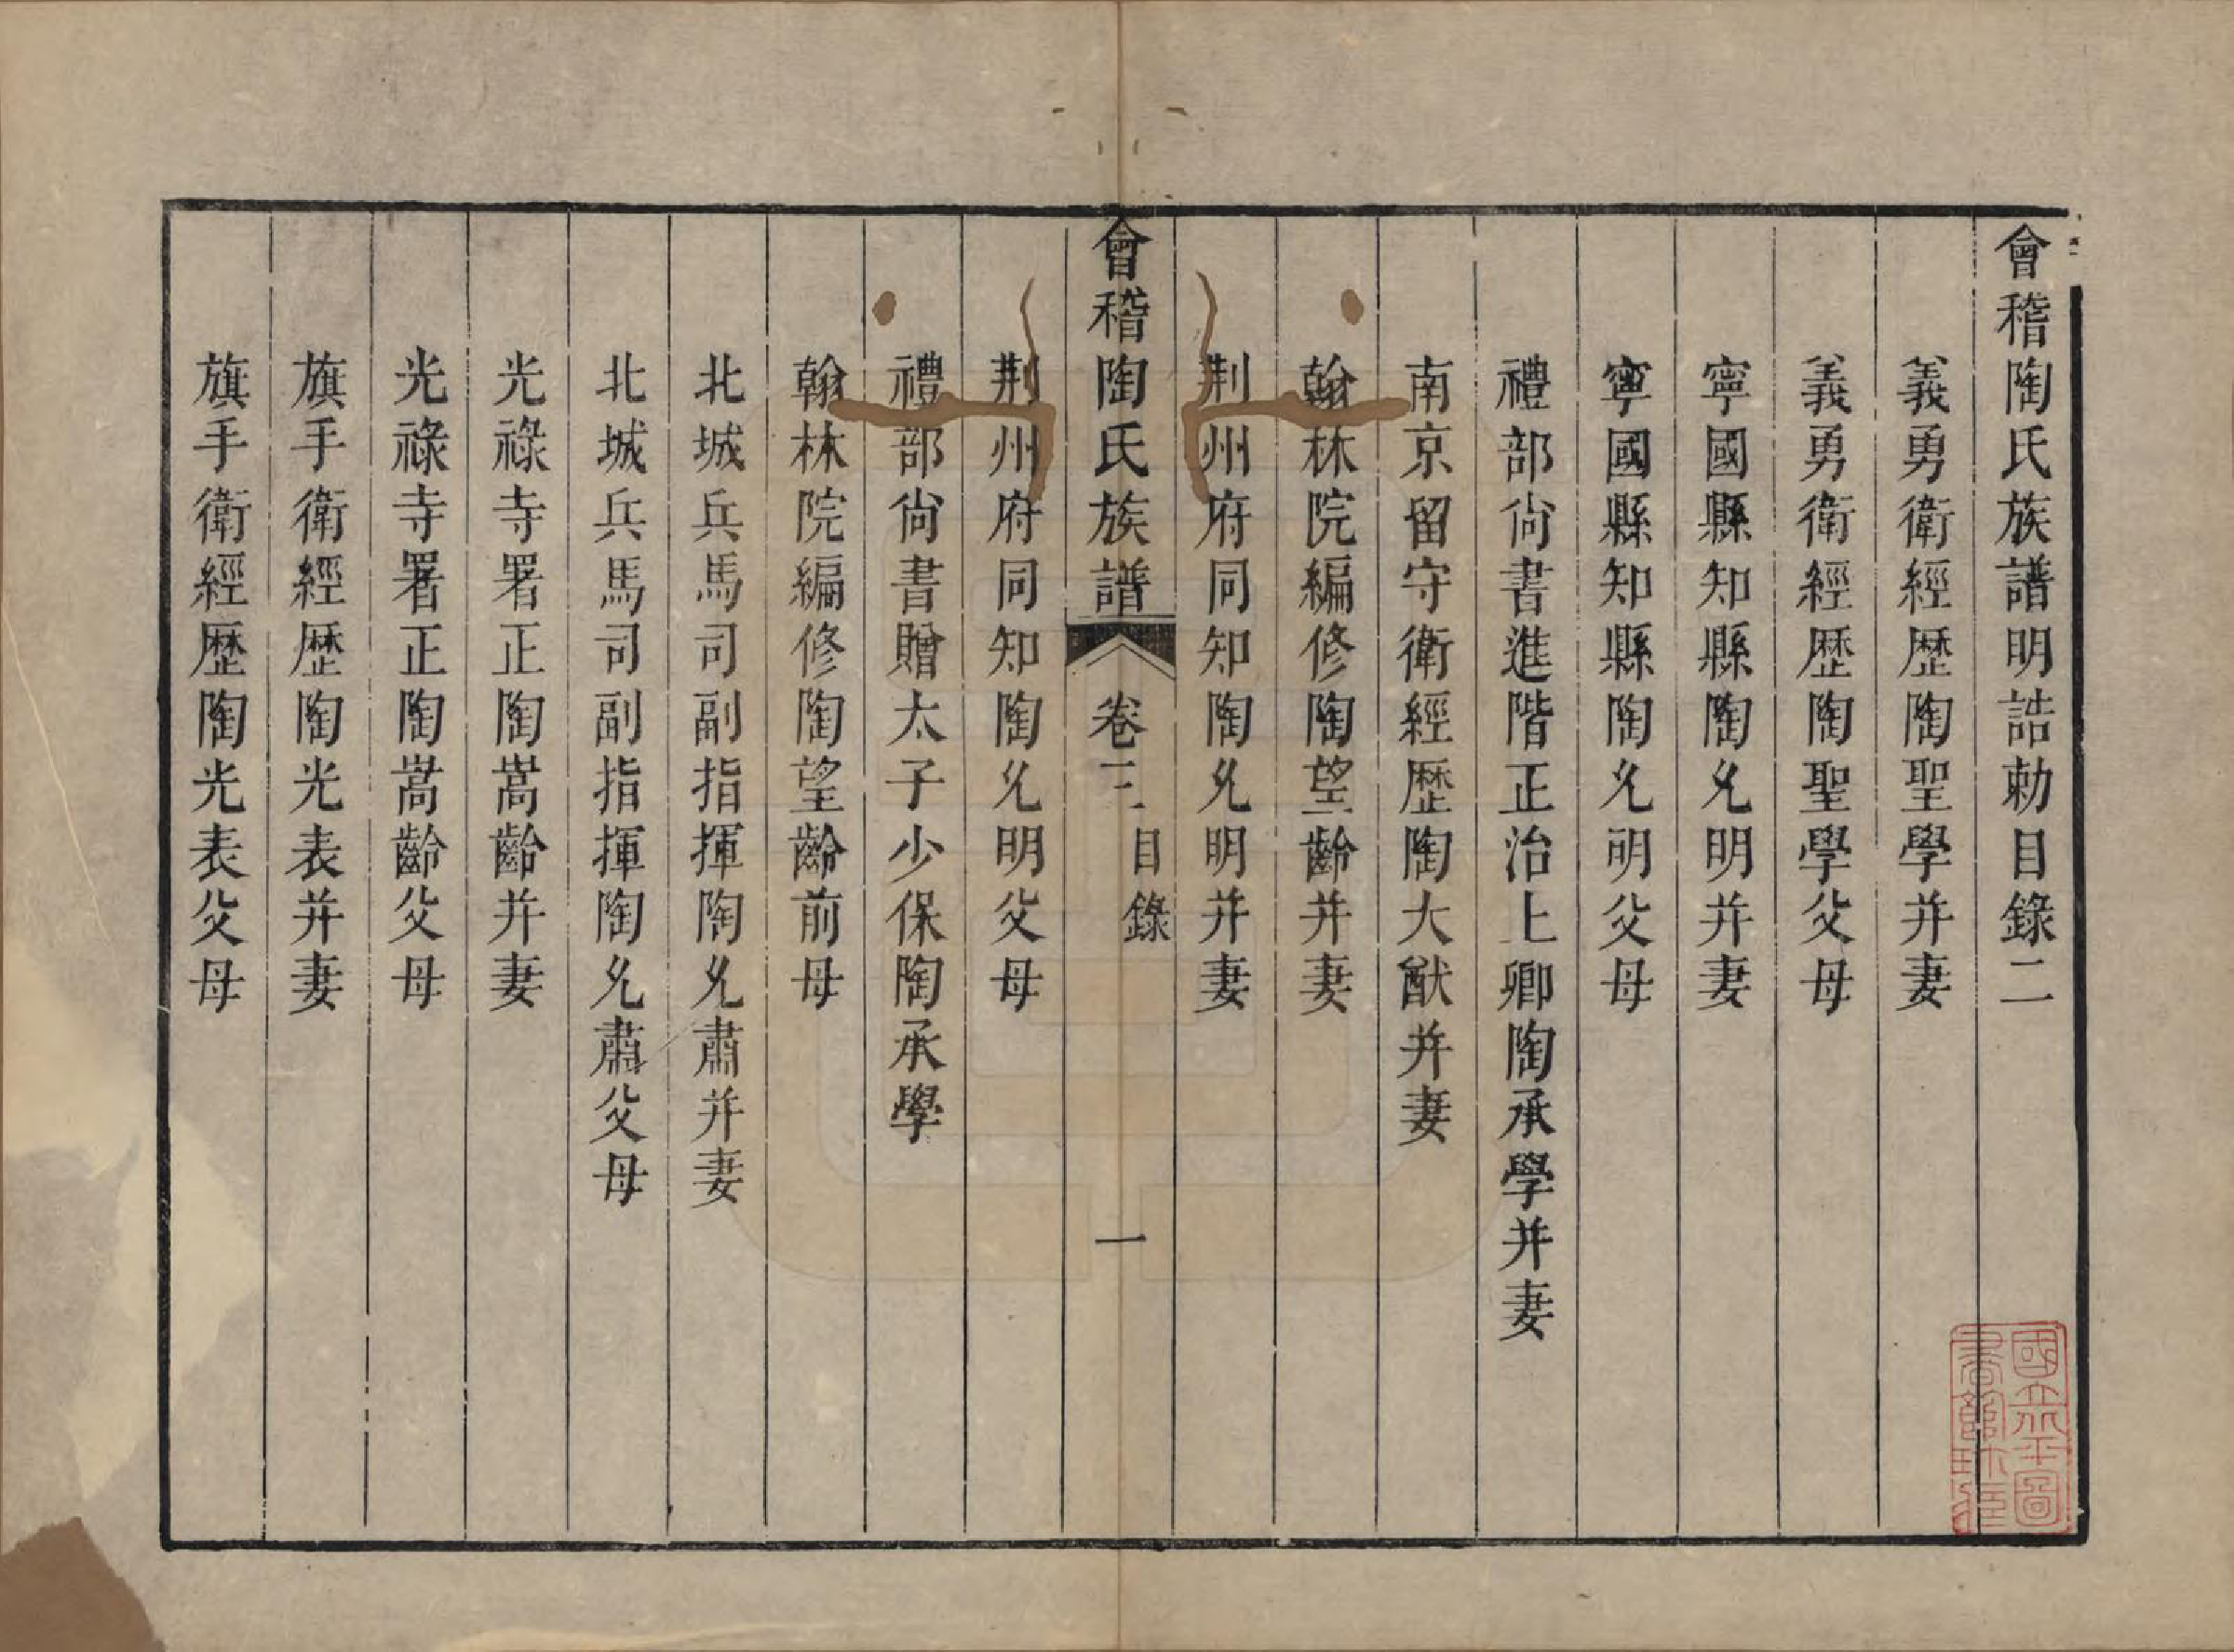 會稽陶氏族譜明誥勅目錄二
義勇衛經歷陶聖學并妻
義勇衛經歷陶聖學父母
寧國縣知縣陶允明并妻
寧國縣知縣陶允明父母
禮部尙書進階正治上卿陶承學并妻
南京留守衛經歷陶大猷并妻
翰林院編修陶望齡并妻
荆州府同知陶允明并妻
會稽陶氏族譜
卷三
目錄
一
荆州府同知陶允明父母
禮部尙書贈太子少保陶承學
翰林院編修陶望齡前母
北城兵馬司副指揮陶允肅并妻
北城兵馬司副指揮陶允肅父母
光祿寺署正陶嵩齡并妻
光祿寺署正陶嵩齡父母
旗手衛經歷陶光表并妻
旗手衛經歷陶光表父母
國立北平圖
書館珍藏